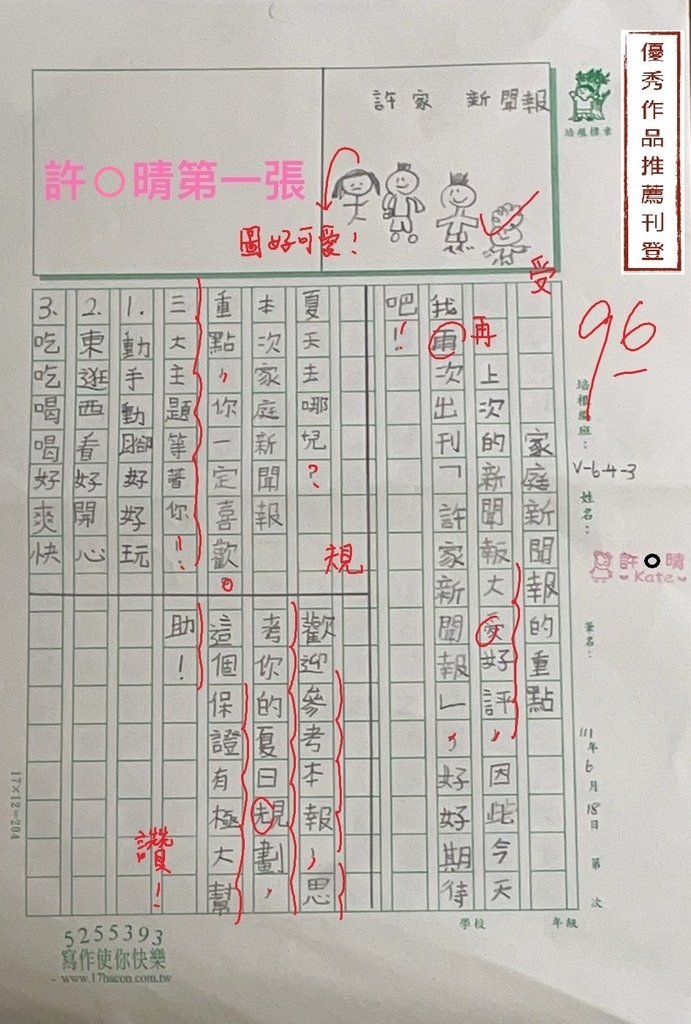 優秀作品推薦刊登
許家 新聞報
許〇晴第一張
圖好可愛！
培根標章
受
96
培根編班：
V-6-4-3
姓名：
許〇晴
Kate
筆名：
111年6月18日 第 次
學校 年級
家庭新聞報的重點
上次的新聞報大受好評，因此今天
再
我再次出刊「許家新聞報」，好好期待
吧！
夏天去哪兒？
本次家庭新聞報
重點，你一定喜歡。
三大主題等著你！：
1.動手動腳好好玩
2.東逛西看好開心
3.吃吃喝喝好爽快
規
歡迎參考本報，思
考你的夏日規劃，
這個保證有極大幫
助！
讚！
17×12=204
5255393
寫作使你快樂
www.17bacon.com.tw